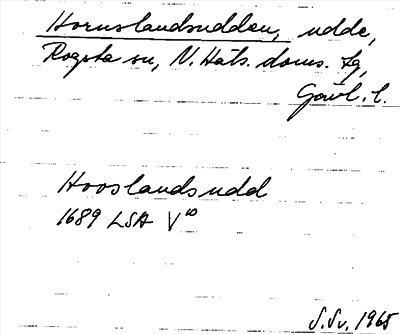 Hornslandsudden, udde,
Rogsta sn, N. Häls. doms. tg,
Gävl. l.
Hooslandsudd
1689 LSA V¹⁰
S.Sv. 1965